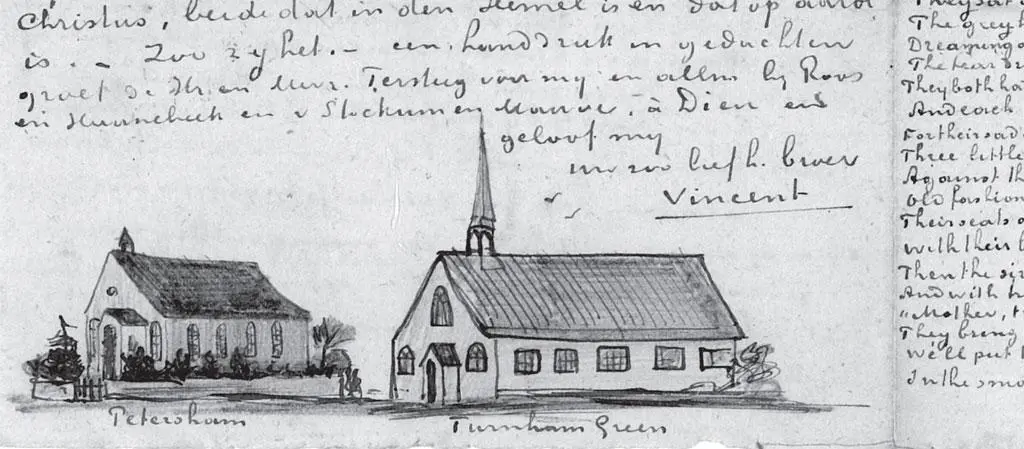 Christus, beide dat in den Hemel is en dat op aarde
is. – Zoo zy het. – een handdruk in gedachten
groet de Hr. en Mevr. Tersteeg van my en allen by Roos
en Haanebeek en v Stockum en Mauve. à Dieu en
geloof my
uw zoo liefh. broer
Vincent
Petersham
Turnham Green
The grey
Dreaming o
The tear dr
They both ha
And each
For their sad
Three little
Against th
Old fashion
Their seats o
With their l
Then the si
And with h
"Mother, t
They bring
We'll put
In the smo